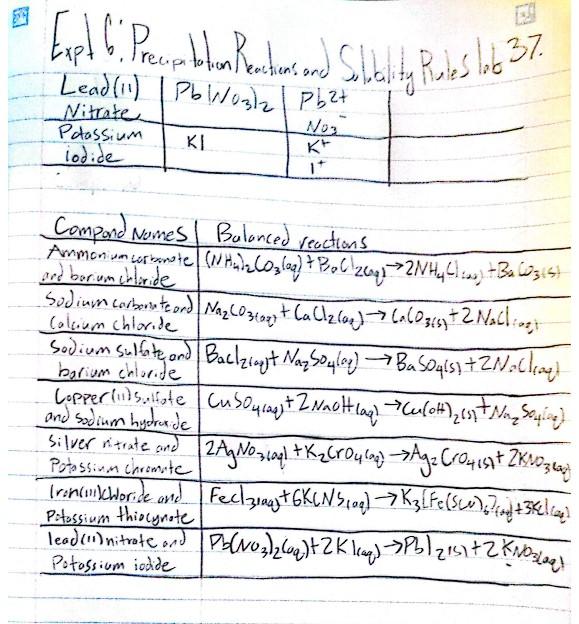 Expt 6: Precipitation Reactions and Solubility Rules lab 37.
Lead(II) Nitrate | Pb(NO3)2 | Pb2+
NO3-
Potassium iodide | KI | K+
I+
Compond Names | Balanced reactions
Ammonium carbonate and barium chloride | (NH4)2CO3(aq) + BaCl2(aq) → 2NH4Cl(aq) + BaCO3(s)
Sodium carbonate and Calcium chloride | Na2CO3(aq) + CaCl2(aq) → CaCO3(s) + 2NaCl(aq)
Sodium sulfate and barium chloride | BaCl2(aq) + Na2SO4(aq) → BaSO4(s) + 2NaCl(aq)
Copper(II) sulfate and sodium hydroxide | CuSO4(aq) + 2NaOH(aq) → Cu(OH)2(s) + Na2SO4(aq)
Silver nitrate and Potassium chromate | 2AgNO3(aq) + K2CrO4(aq) → Ag2CrO4(s) + 2KNO3(aq)
Iron(III) chloride and Potassium thiocynate | FeCl3(aq) + 6KCNS(aq) → K3[Fe(SCN)6](aq) + 3KCl(aq)
lead(II) nitrate and Potassium iodide | Pb(NO3)2(aq) + 2KI(aq) → PbI2(s) + 2KNO3(aq)